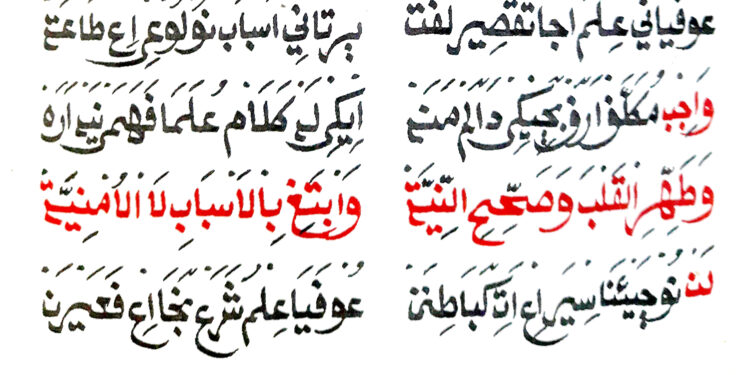 عوفياني علم اجا تقصير لفت برتاني اسباب نولوعي اع طاعتع
وَاجِب مُكَلَّف دالم ايكي لع كَلَام عُلَمَا فَهَمَ
وَطَهِّرِ القَلْبَ وَصَحِّحِ النِّيَّة وَابْتَغِ بِالاَسْبَابِ لاَ الاُمْنِيَّة
لن نوجيئنا سيراع ات كباطنن عوفيا علم شرع نجا اع فعيرن